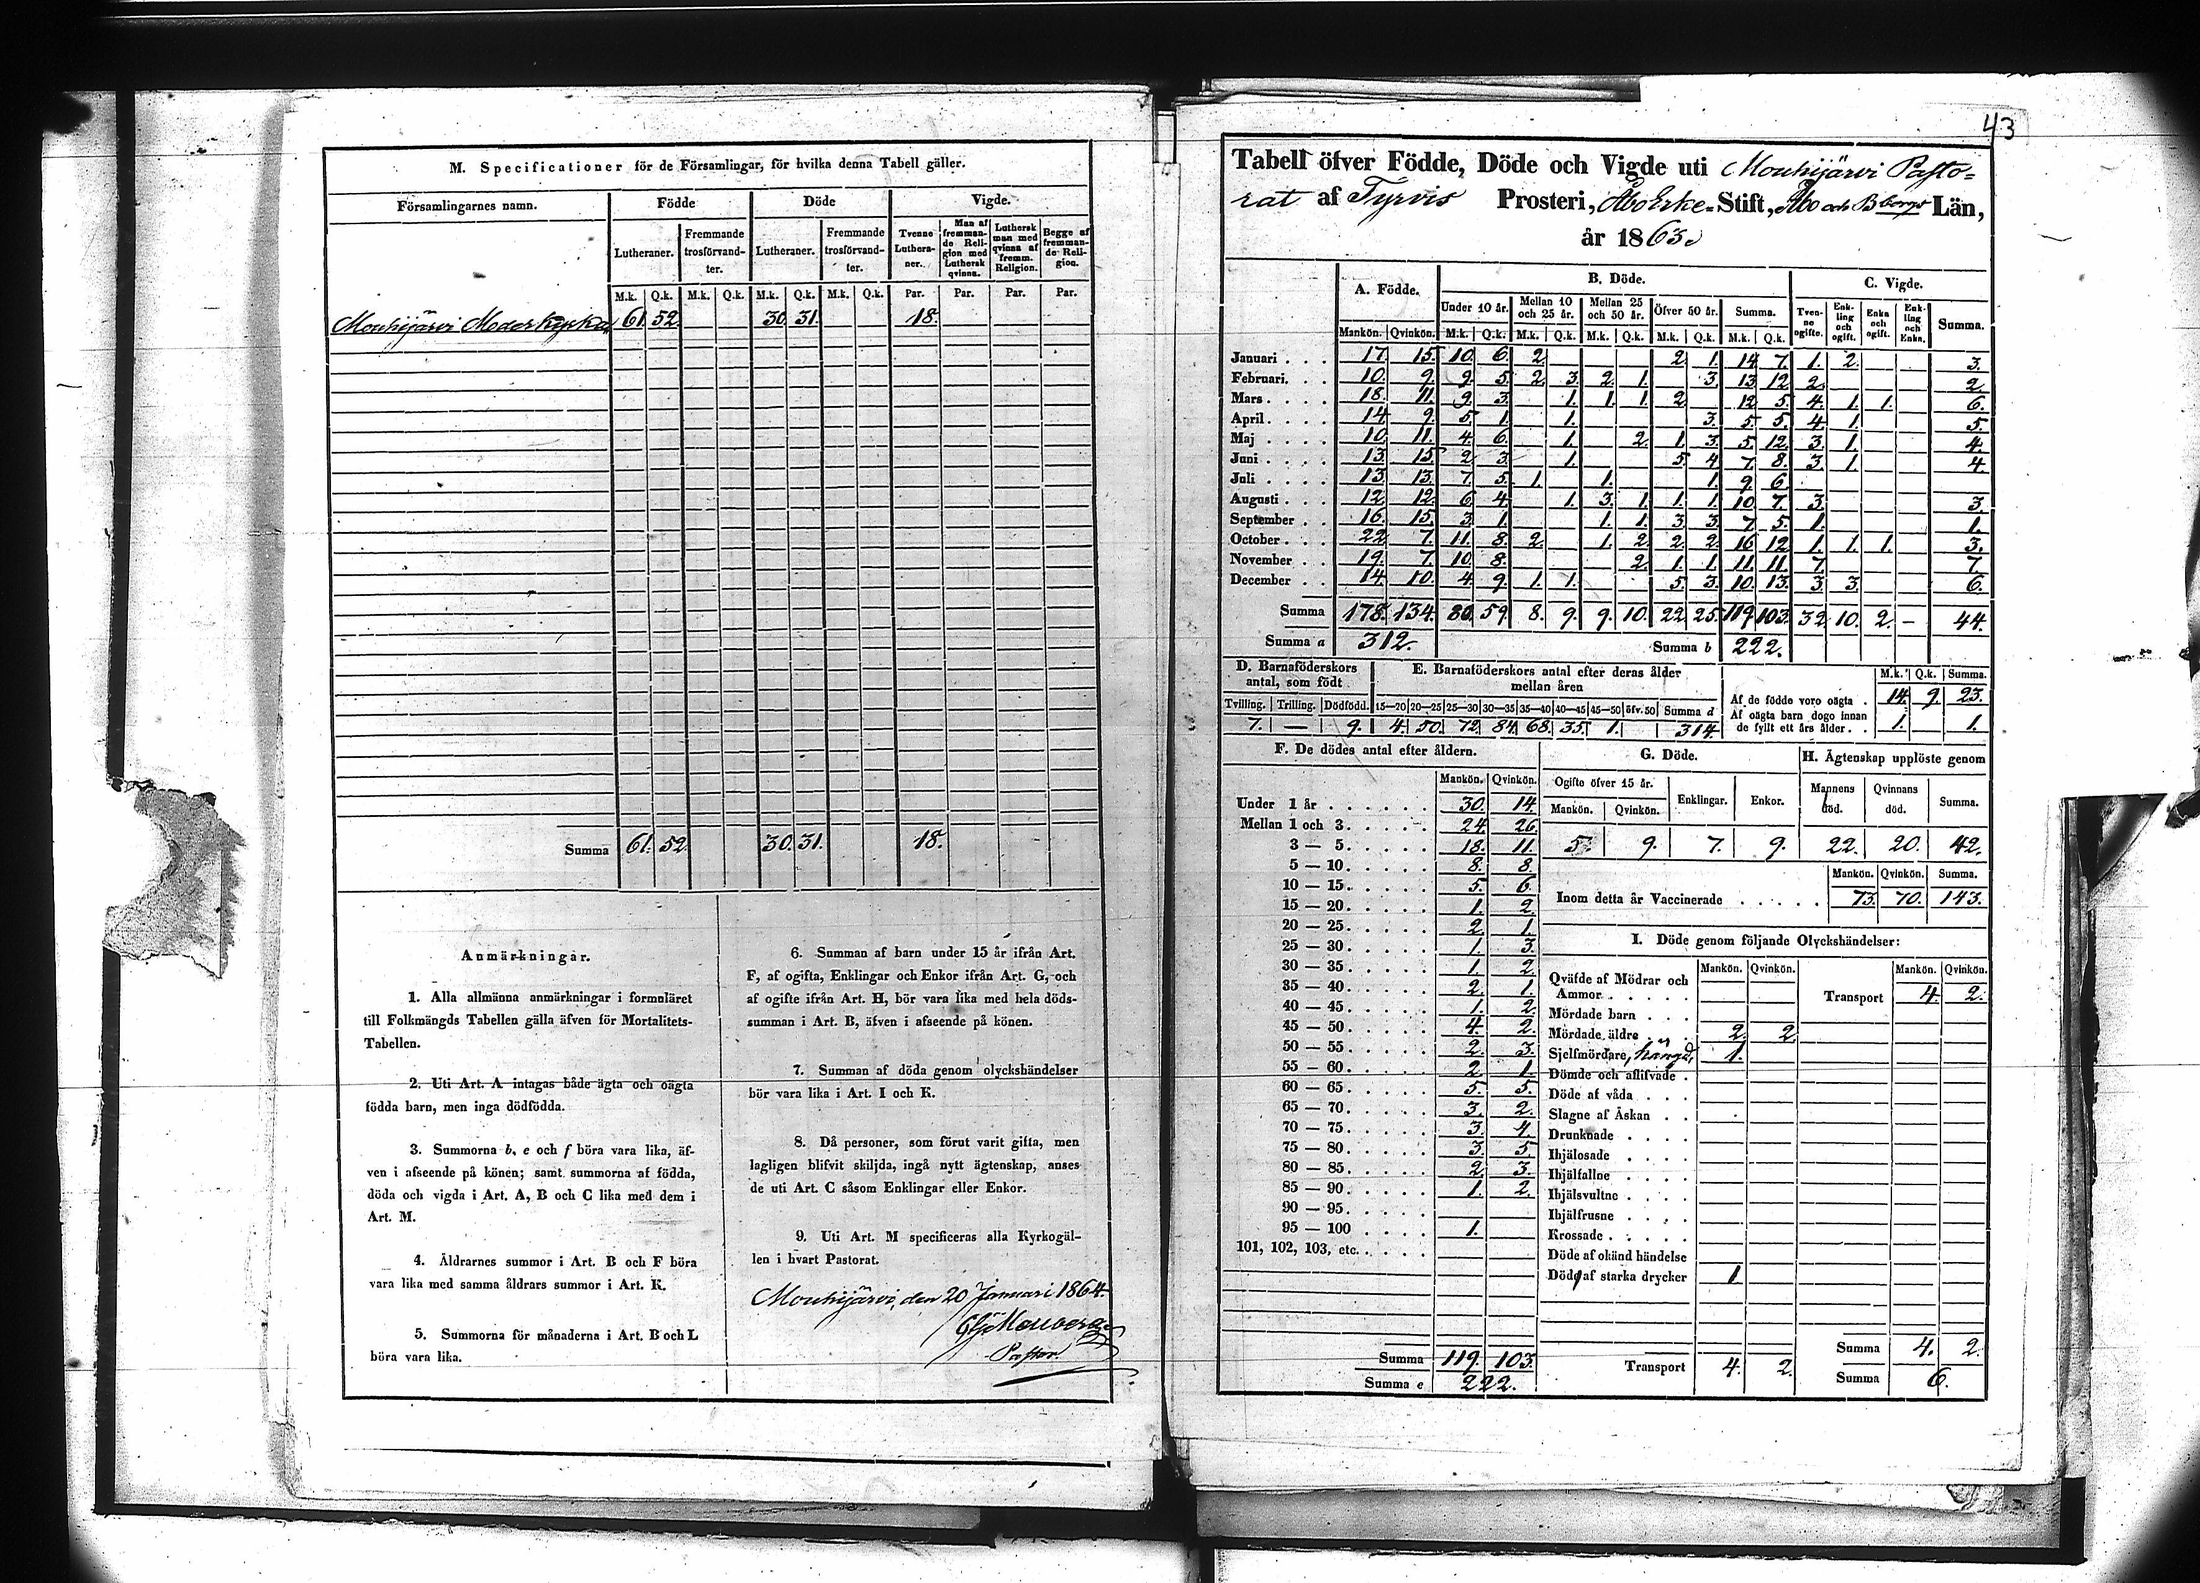 M. Specificationer för de Församlingar, för hvilka denna Tabell gäller.
Församlingarnes namn. Födde Döde Vigde.
Lutheraner. Fremmande trosförvandter. Lutheraner. Fremmande trosförvandter. Tvenne Lutheraner. Man af fremmande Religion med Luthersk qvinna. Luthersk man med qvinna af fremm. Religion. Begge af fremmande Religion.
M.k. Q.k. M.k. Q.k. M.k. Q.k. M.k. Q.k. Par. Par. Par. Par.
Mouhijärvi Moderkyrka 61. 52. 30. 31. 18.
Summa 61. 52. 30. 31. 18.
Anmärkningar.
1. Alla allmänna anmärkningar i formuläret
till Folkmängds Tabellen gälla äfven för Mortalitets-
Tabellen.
2. Uti Art. A intagas både ägta och oägta
födda barn, men inga dödfödda.
3. Summorna b, e och f böra vara lika, äf-
ven i afseende på könen; samt summorna af födda,
döda och vigda i Art. A, B och C lika med dem i
Art. M.
4. Åldrarnes summor i Art. B och F böra
vara lika med samma åldrars summor i Art. K.
5. Summorna för månaderna i Art. B och L
böra vara lika.
6. Summan af barn under 15 år ifrån Art.
F, af ogifta, Enklingar och Enkor ifrån Art. G, och
af ogifte ifrån Art. H, bör vara lika med hela döds-
summan i Art. B, äfven i afseende på könen.
7. Summan af döda genom olyckshändelser
bör vara lika i Art. I och K.
8. Då personer, som förut varit gifta, men
lagligen blifvit skiljda, ingå nytt ägtenskap, anses
de uti Art. C såsom Enklingar eller Enkor.
9. Uti Art. M specificeras alla Kyrkogäl-
len i hvart Pastorat.
Mouhijärvi, den 20 Januari 1864.
Pastor.
43
Tabell öfver Födde, Döde och Vigde uti Mouhijärvi Pasto-
rat af Tyrvis Prosteri, Åbo Erke-Stift, Åbo och Bborgs Län,
år 1863.
A. Födde. B. Döde. C. Vigde.
Under 10 år. Mellan 10 och 25 år. Mellan 25 och 50 år. Öfver 50 år. Summa. Tvenne ogifte. Enkling och ogift. Enka och ogift. Enkling och Enka. Summa.
Mankön. Qvinkön. M.k. Q.k. M.k. Q.k. M.k. Q.k. M.k. Q.k. M.k. Q.k.
Januari 17. 15. 10. 6. 2. 2. 1. 14. 7. 1. 2. 3.
Februari. 10. 9. 9. 5. 2. 3. 2. 1. 3. 13. 12. 2. 2
Mars 18. 11. 9. 3. 1. 1. 1. 2. 12. 5. 4. 1. 1. 6.
April 14. 9. 5. 1. 1. 3. 5. 5. 4. 1. 5.
Maj 10. 11. 4. 6. 1. 2. 1. 3. 5. 12. 3. 1. 4.
Juni 13. 15. 2. 3. 1. 5. 4. 7. 8. 3. 1. 4.
Juli 13. 13. 7. 5. 1. 1. 1. 9. 6.
Augusti 12. 12. 6. 4. 1. 3. 1. 1. 1. 10. 7. 3. 3.
September 16. 15. 3. 1. 1. 1. 3. 3. 7. 5. 1. 1.
October 22. 7. 11. 8. 2. 1. 2. 2. 2. 16. 12. 1. 1. 1. 3.
November 19. 7. 10. 8. 2. 1. 1. 11. 11. 7. 7.
December 14. 10. 4. 9. 1. 1. 5. 3. 10. 13. 3. 3. 6.
Summa 178. 134. 80. 59. 8. 9. 9. 10. 22. 25. 119. 103. 32. 10. 2. – 44.
Summa a 312. Summa b 222.
D. Barnaföderskors antal, som födt
E. Barnaföderskors antal efter deras ålder mellan åren
Tvilling. Trilling. Dödfödd. 15—20 20—25 25—30 30—35 35—40 40—45 45—50 öfv. 50 Summa d
7. — 9. 4. 50. 72. 84. 68. 35. 1. 314.
M.k. Q.k. Summa.
Af de födde voro oägta 14. 9. 23.
Af oägta barn dogo innan de fyllt ett års ålder 1. 1.
F. De dödes antal efter åldern.
Mankön. Qvinkön.
Under 1 år 30. 14.
Mellan 1 och 3. 24. 26.
3 — 5. 18. 11.
5 — 10. 8. 8.
10 — 15. 5. 6.
15 — 20. 1. 2.
20 — 25. 2. 1.
25 — 30. 1. 3.
30 — 35. 1. 2.
35 — 40. 2. 1.
40 — 45. 1. 2.
45 — 50. 4. 2.
50 — 55. 2. 3.
55 — 60. 2. 1.
60 — 65. 5. 5.
65 — 70. 3. 2.
70 — 75. 3. 4.
75 — 80. 3. 5.
80 — 85. 2. 3.
85 — 90. 1. 2.
90 — 95.
95 — 100 1.
101, 102, 103, etc.
Summa 119. 103.
Summa e 222.
G. Döde.
Ogifte öfver 15 år. Enklingar. Enkor.
Mankön. Qvinkön.
5. 9. 7. 9.
H. Ägtenskap upplöste genom
Mannens död. Qvinnans död. Summa.
22. 20. 42.
Mankön. Qvinkön. Summa.
Inom detta år Vaccinerade 73. 70. 143.
I. Döde genom följande Olyckshändelser:
Mankön. Qvinkön. Mankön. Qvinkön.
Qväfde af Mödrar och Ammor
Transport 4. 2.
Mördade barn
Mördade äldre 2. 2.
Sjelfmördare, hängd, 1.
Dömde och aflifvade
Döde af våda
Slagne af Åskan
Drunknade
Ihjälosade
Ihjälfallne
Ihjälsvultne
Ihjälfrusne
Krossade
Döde af okänd händelse
Död af starka drycker 1
Transport 4. 2.
Summa 4. 2.
Summa 6.